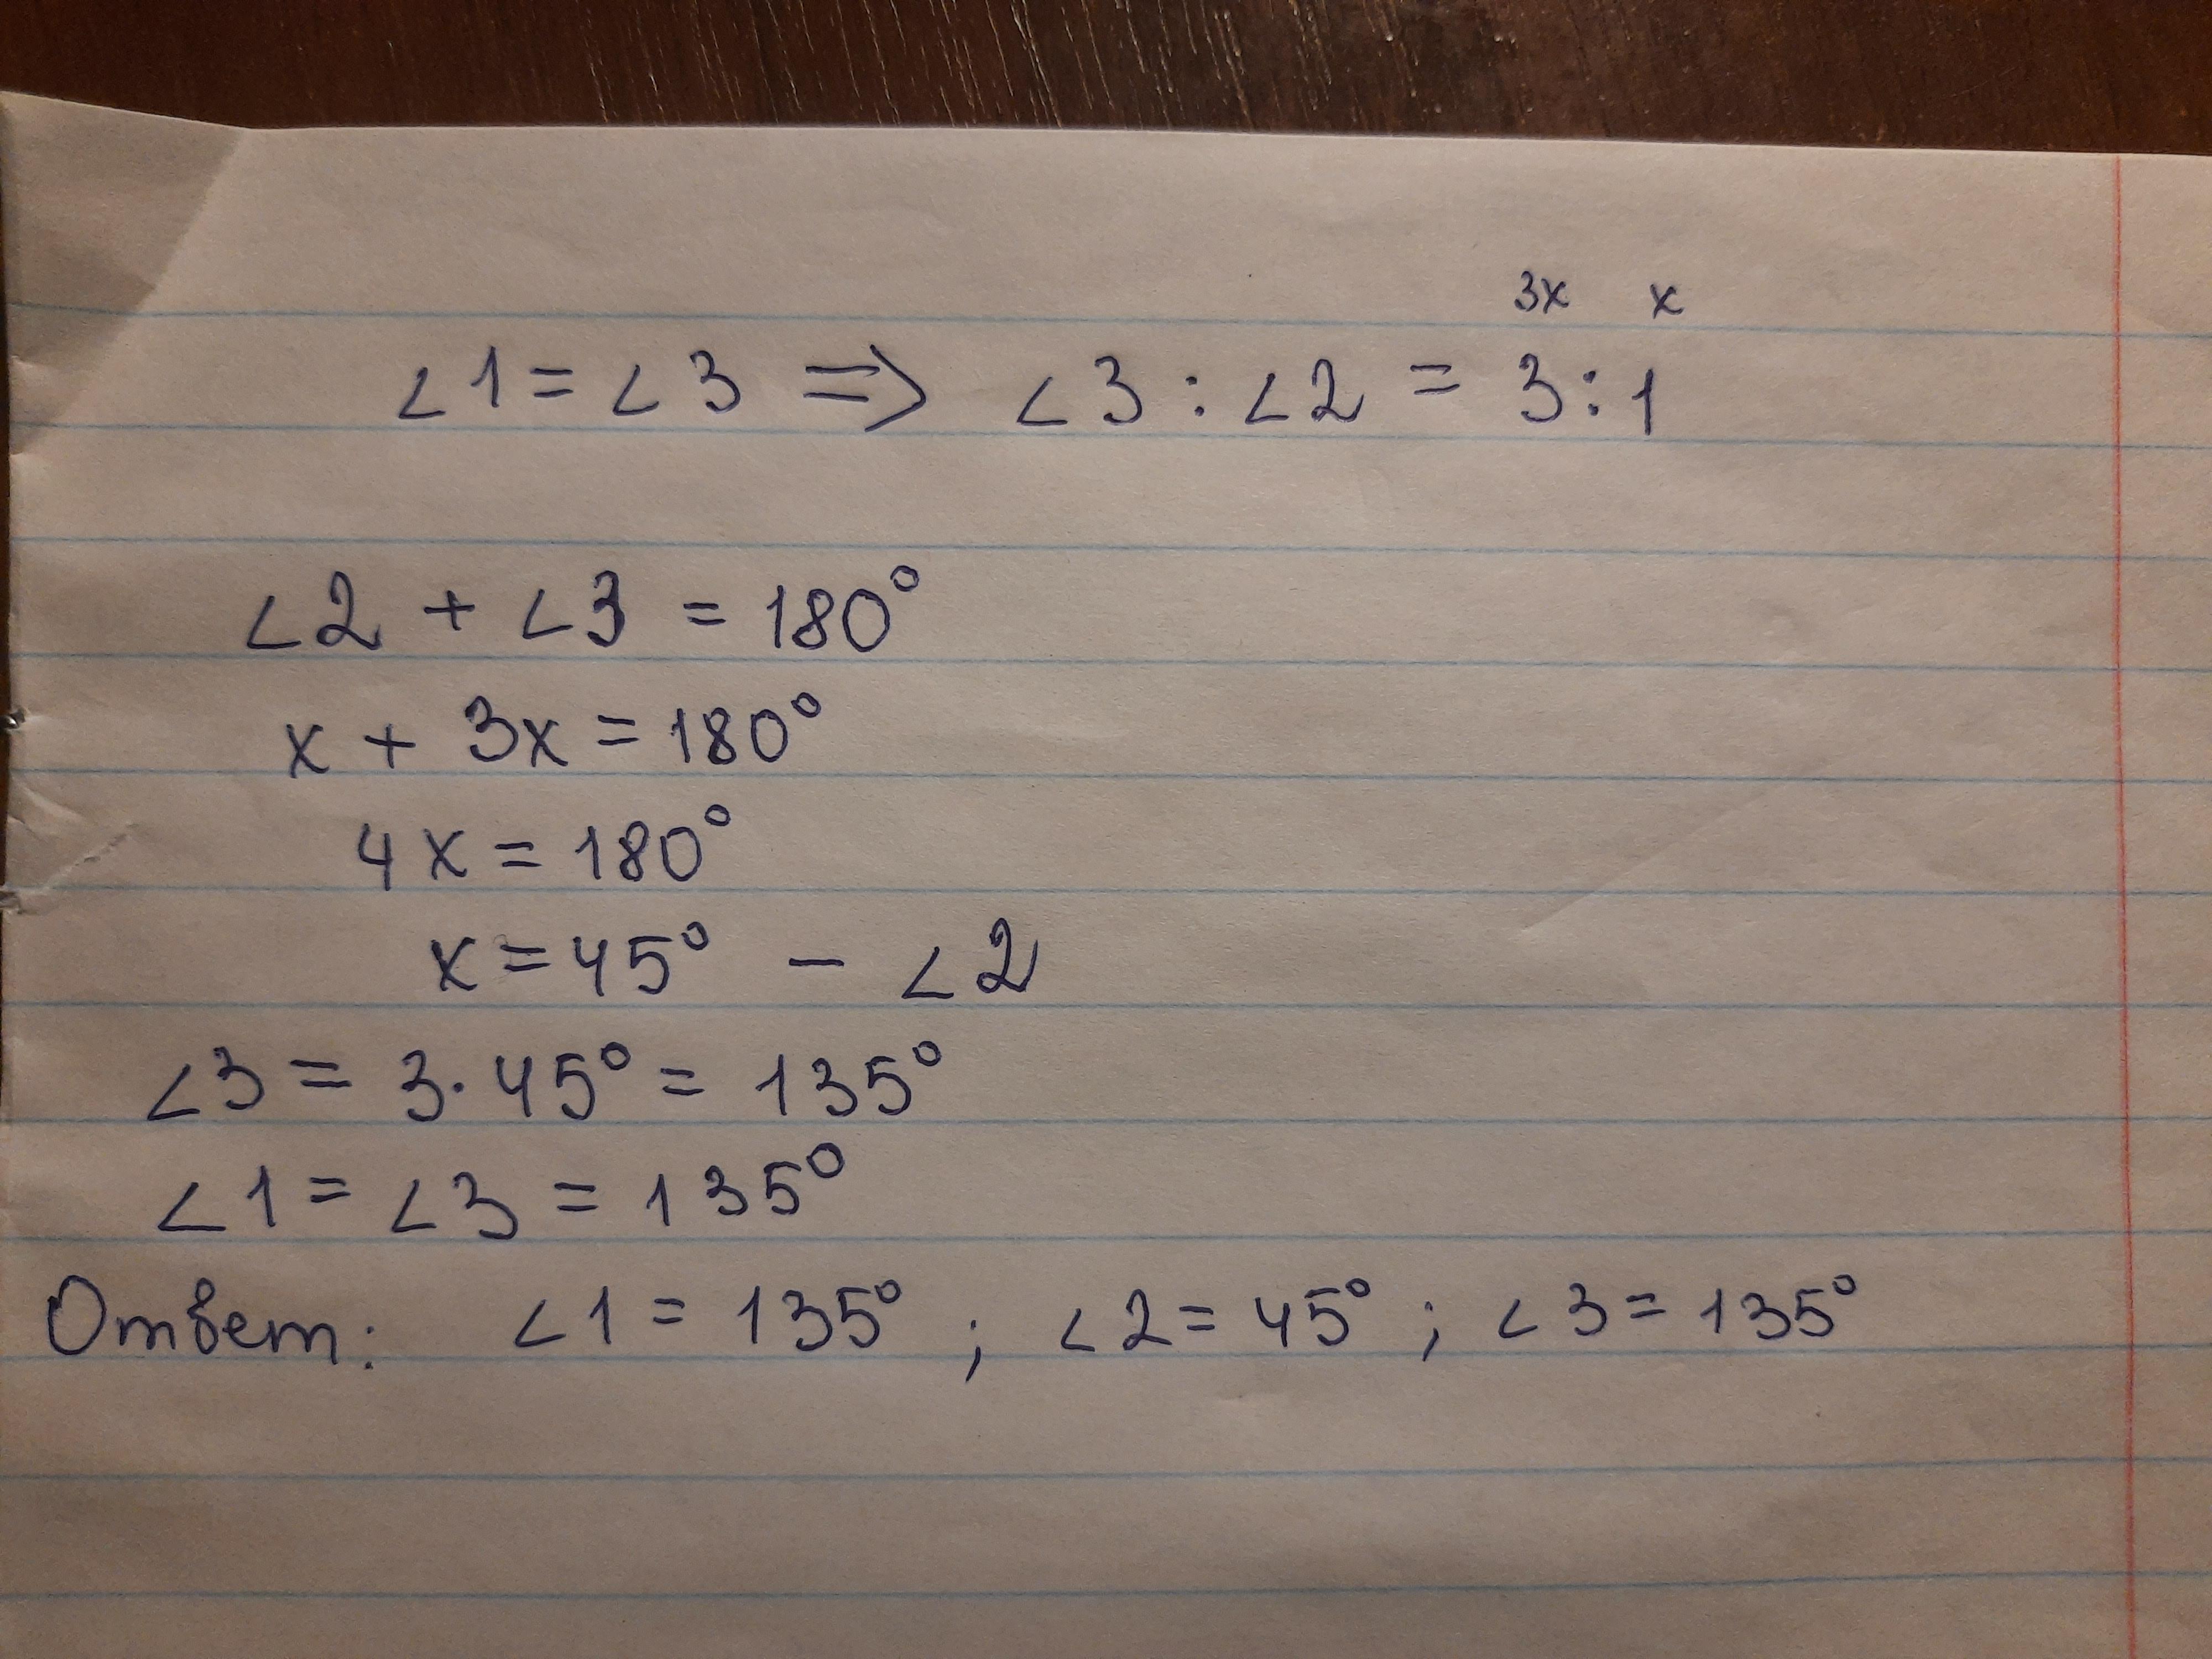 3x x
∠1 = ∠3 => ∠3 : ∠2 = 3 : 1
∠2 + ∠3 = 180°
x + 3x = 180°
4x = 180°
x = 45° – ∠2
∠3 = 3 · 45° = 135°
∠1 = ∠3 = 135°
Ответ: ∠1 = 135° ; ∠2 = 45° ; ∠3 = 135°